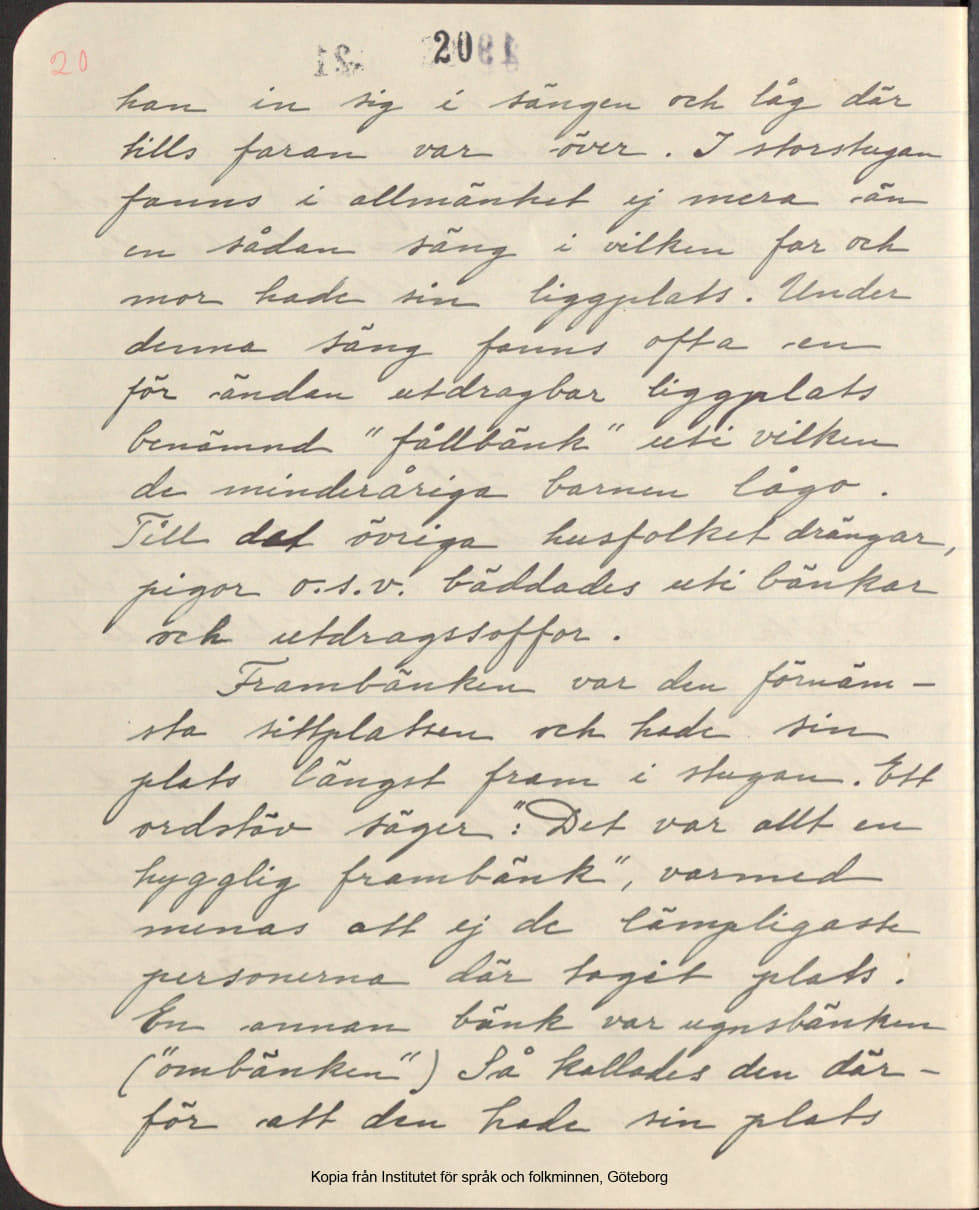 20
20
han in sig i sängen och låg där
tills faran var över. I storstugan
fanns i allmänhet ej mera än
en sådan säng i vilken far och
mor hade sin liggplats. Under
denna säng fanns ofta en
för ändan utdragbar liggplats
benämnd "fållbänk" uti vilken
de minderåriga barnen lågo.
Till det övriga husfolket drängar,
pigor o.s.v. bäddades uti bänkar
och utdragssoffor.
Frambänken var den förnäm-
sta sittplatsen och hade sin
plats längst fram i stugan. Ett
ordstäv säger: "Det var allt en
hygglig frambänk", varmed
menas att ej de lämpligaste
personerna där tagit plats.
En annan bänk var ugnsbänken
("ombänken") Så kallades den där-
för att den hade sin plats
Kopia från Institutet för språk och folkminnen, Göteborg